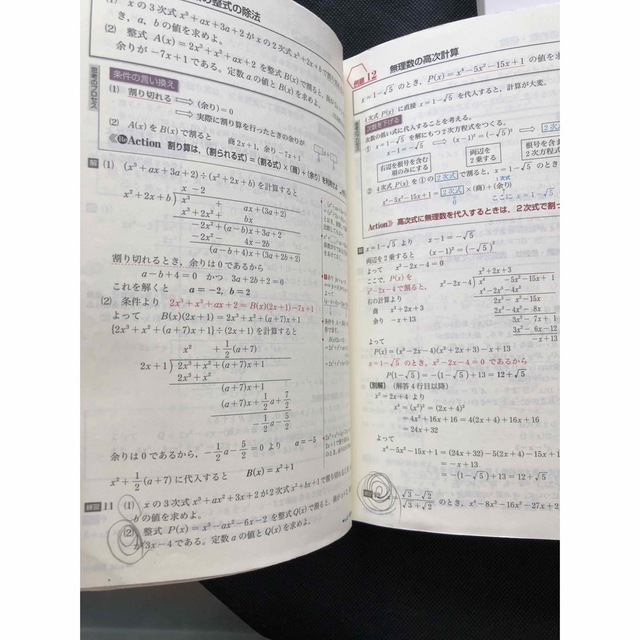 の整式の除法
(1) xの3次式 x³+ax+3a+2 が x の2次式 x²+2x+b で
き，a，b の値を求めよ。
(2) 整式 A(x)=2x³+x²+ax+2 を整式 B(x) で割ると，
余りが -7x+1 である。定数 a の値と B(x) を求めよ。
思考のプロセス
条件の言い換え
(1) 割り切れる ⟹ (余り)=0
⟹ 実際に割り算を行ったときの余りが
(2) A(x) を B(x) で割ると 商 2x+1，余り -7x+1
Action 割り算は，(割られる式)=(割る式)×(商)+(余り) を利用
解 (1) (x³+ax+3a+2)÷(x²+2x+b) を計算すると
x-2
x²+2x+b ) x³ + ax+(3a+2)
x³+2x²+ bx
-2x²+(a-b)x+3a+2
-2x²- 4x-2b
(a-b+4)x+(3a+2b+2)
割り切れるとき，余りは0であるから
a-b+4=0 かつ 3a+2b+2=0
これを解くと a=-2, b=2
(2) 条件より 2x³+x²+ax+2=B(x)(2x+1)-7x+1
よって B(x)(2x+1)=2x³+x²+(a+7)x+1
{2x³+x²+(a+7)x+1}÷(2x+1) を計算すると
x² + 1/2(a+7)
2x+1 ) 2x³+x²+(a+7)x+1
2x³+x²
(a+7)x+1
(a+7)x+1/2a+7/2
-1/2a-5/2
余りは0であるから，-1/2a-5/2=0 より a=-5
x²+1/2(a+7) に代入すると B(x)=x²+1
練習 11 (1) xの3次式 x³+ax²+3x+2 が2次式 x²+bx+1 で
b の値を求めよ。
(2) 整式 P(x)=x³-ax²-6x-2 を整式 Q(x) で割ると，
が3x-4である。定数 a の値と Q(x) を求めよ。
例題 12 無理数の高次計算
x=1-√5 のとき，P(x)=x⁴-5x²-15x+1 の値を求
4次式 P(x) に直接 x=1-√5 を代入すると，計算が大変。
次数を下げる
次数の低い式に代入することを考える。
① x=1-√5 を解にもつ2次方程式をつくる。
x-1=-√5 ⟹ (x-1)²=(-√5)² ⟹ 2次式
右辺を根号を含む項のみにする
両辺を2乗する
根号を含まない2次方程式
② 4次式 P(x) を①の2次式で割ると，x=1-√5 のとき
x⁴-5x²-15x+1=(2次式)×(商)+(余り)
0
ここに x=1-√5
Action» 高次式に無理数を代入するときは，2次式で割っ
解 x=1-√5 より x-1=-√5
両辺を2乗すると (x-1)²=(-√5)²
よって x²-2x-4=0
ここで，P(x) を
x²-2x-4 で割ると，
右の計算より
商 x²+2x+3
余り -x+13
x²+2x+3
x⁴ -5x²-15x+1
x⁴-2x³-4x²
2x³- x²-15x
2x³-4x²- 8x
3x²- 7x+1
3x²- 6x-12
-x+13
よって
P(x)=(x²-2x-4)(x²+2x+3)-x+13
x=1-√5 のとき，x²-2x-4=0 であるから
P(1-√5)=-(1-√5)+13=12+√5
(別解) (解答4行目以降)
x²=2x+4 より
x⁴=(x²)²=(2x+4)²
=4x²+16x+16=4(2x+4)+16x+16
=24x+32
よって
x⁴-5x²-15x+1=(24x+32)-5(2x+4)-15x+1
=-x+13
=-(1-√5)+13=12+√5
√3-√2/√3+√2 のとき，x⁴-8x³-16x²-27x+2